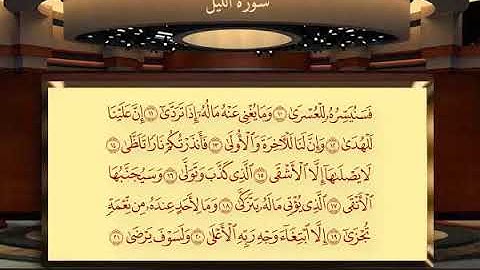 سورة الليل
فَسَنُيَسِّرُهُ لِلْعُسْرَىٰ ١٠ وَمَا يُغْنِي عَنْهُ مَالُهُ إِذَا تَرَدَّىٰ ١١ إِنَّ عَلَيْنَا
لَلْهُدَىٰ ١٢ وَإِنَّ لَنَا لَلْآخِرَةَ وَالْأُولَىٰ ١٣ فَأَنذَرْتُكُمْ نَارًا تَلَظَّىٰ ١٤
لَا يَصْلَاهَا إِلَّا الْأَشْقَى ١٥ الَّذِي كَذَّبَ وَتَوَلَّىٰ ١٦ وَسَيُجَنَّبُهَا
الْأَتْقَى ١٧ الَّذِي يُؤْتِي مَالَهُ يَتَزَكَّىٰ ١٨ وَمَا لِأَحَدٍ عِندَهُ مِن نِّعْمَةٍ
تُجْزَىٰ ١٩ إِلَّا ابْتِغَاءَ وَجْهِ رَبِّهِ الْأَعْلَىٰ ٢٠ وَلَسَوْفَ يَرْضَىٰ ٢١